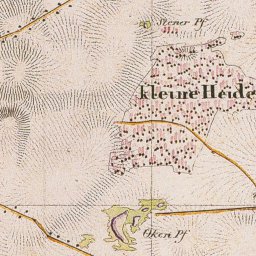 Stener Pf
kleine Heide
Okeri Pf